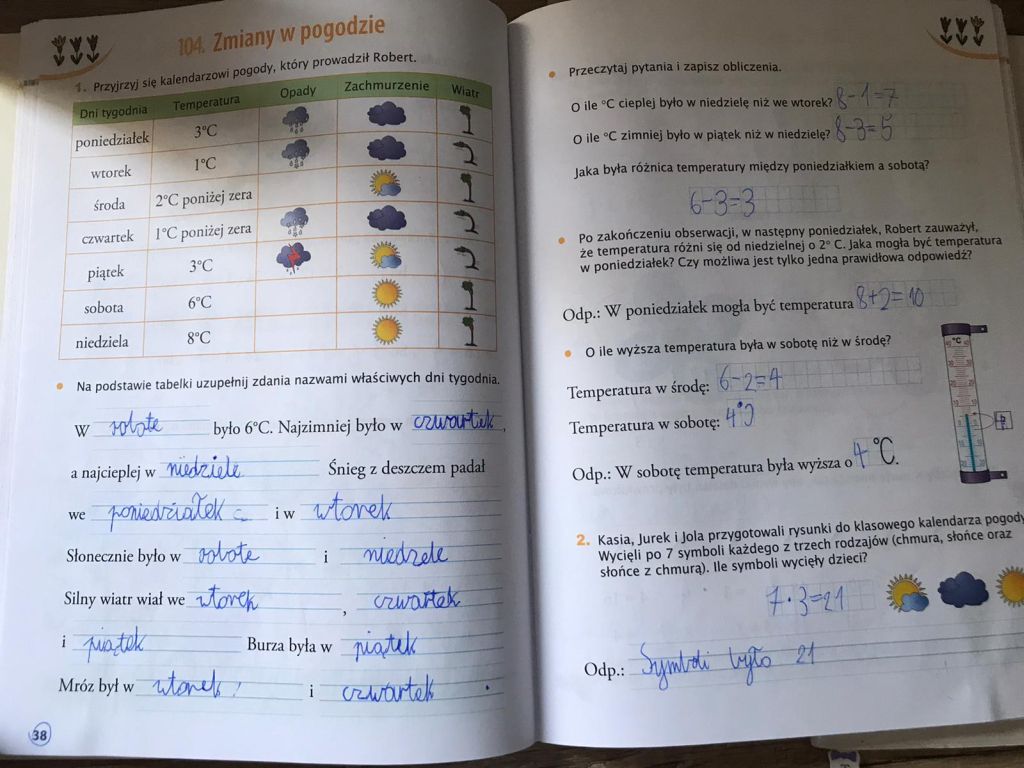 104. Zmiany w pogodzie
1. Przyjrzyj się kalendarzowi pogody, który prowadził Robert.
Dni tygodnia Temperatura Opady Zachmurzenie Wiatr
poniedziałek 3°C
wtorek 1°C
środa 2°C poniżej zera
czwartek 1°C poniżej zera
piątek 3°C
sobota 6°C
niedziela 8°C
• Na podstawie tabelki uzupełnij zdania nazwami właściwych dni tygodnia.
W sobote było 6°C. Najzimniej było w czwartek,
a najcieplej w niedziele Śnieg z deszczem padał
we poniedziałek i w wtorek
Słonecznie było w sobote i niedzele
Silny wiatr wiał we wtorek, czwartek
i piątek Burza była w piątek
Mróz był w wtorek i czwartek.
38
• Przeczytaj pytania i zapisz obliczenia.
O ile °C cieplej było w niedzielę niż we wtorek? 8-1=7
O ile °C zimniej było w piątek niż w niedzielę? 8-3=5
Jaka była różnica temperatury między poniedziałkiem a sobotą?
6-3=3
• Po zakończeniu obserwacji, w następny poniedziałek, Robert zauważył,
że temperatura różni się od niedzielnej o 2° C. Jaka mogła być temperatura
w poniedziałek? Czy możliwa jest tylko jedna prawidłowa odpowiedź?
Odp.: W poniedziałek mogła być temperatura 8+2=10
• O ile wyższa temperatura była w sobotę niż w środę?
Temperatura w środę: 6-2=4
Temperatura w sobotę: 4°
Odp.: W sobotę temperatura była wyższa o 4 °C.
°C
2. Kasia, Jurek i Jola przygotowali rysunki do klasowego kalendarza pogody
Wycięli po 7 symboli każdego z trzech rodzajów (chmura, słońce oraz
słońce z chmurą). Ile symboli wycięły dzieci?
7·3=21
Odp.: Symboli było 21